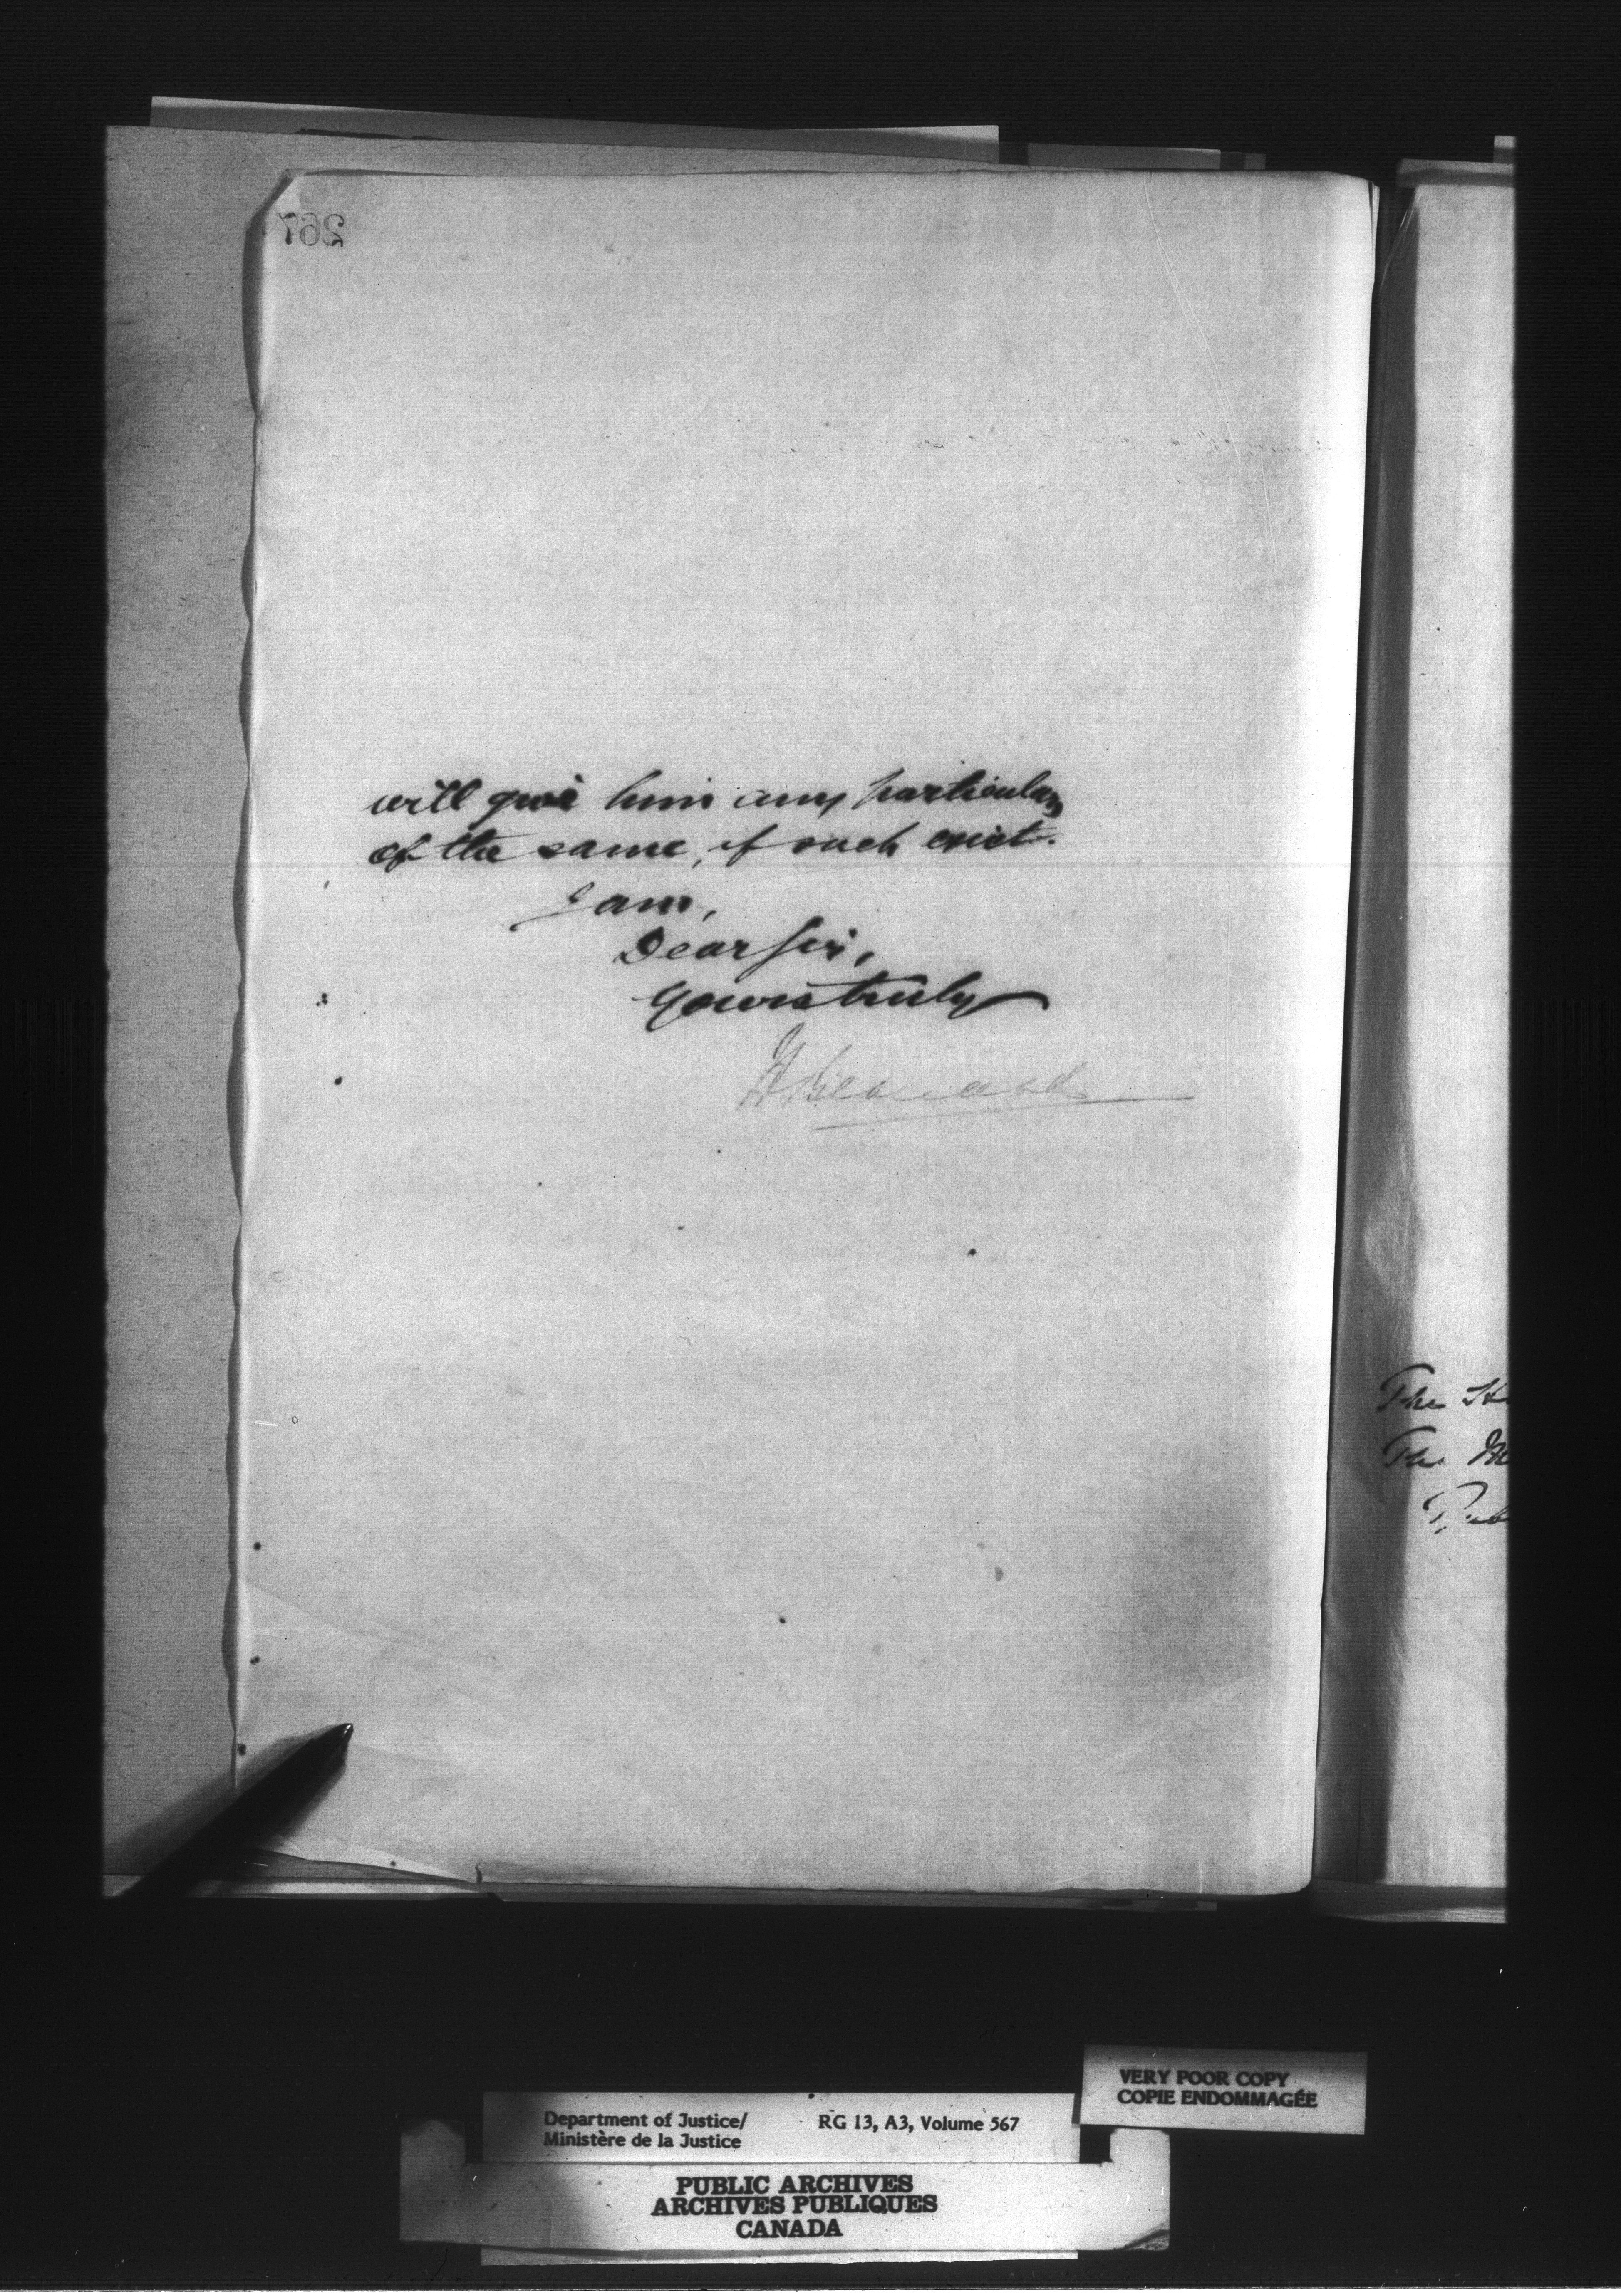 267
will give him any particulars
of the same, if such exist.
I am,
Dear Sir,
Yours truly
H Bernard
The H
The M
Pub
VERY POOR COPY
COPIE ENDOMMAGÉE
Department of Justice/ RG 13, A3, Volume 567
Ministère de la Justice
PUBLIC ARCHIVES
ARCHIVES PUBLIQUES
CANADA